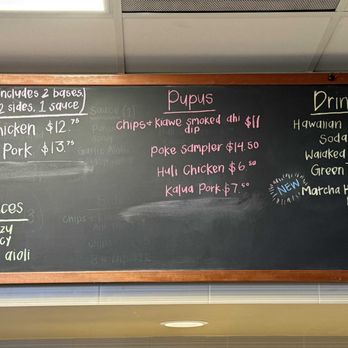 includes 2 bases,
2 sides, 1 sauce)
hicken $12.75
Pork $13.75
ces
zy
cy
aioli
Pupus
chips + Kiawe smoked ahi dip $11
poke sampler $14.50
Huli Chicken $6.50
Kalua Pork $7.50
Drin
Hawaiian
Soda
Waiakea
Green
NEW
Matcha